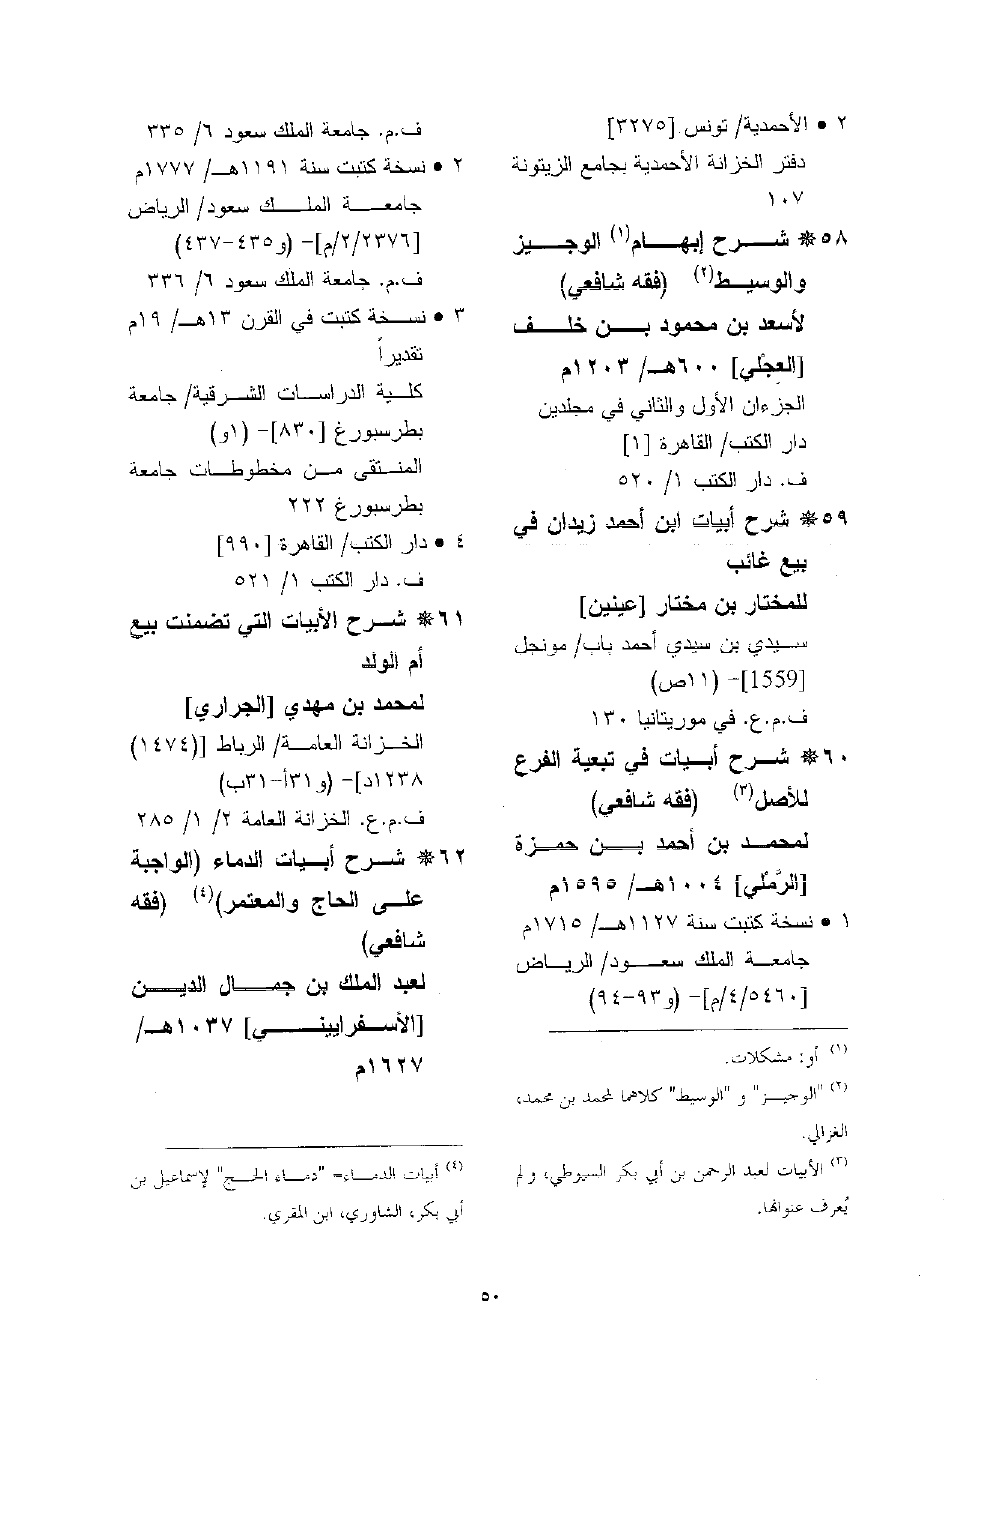 ٢ • الأحمدية/ تونس [٣٢٧٥]
دفتر الخزانة الأحمدية بجامع الزيتونة
١٠٧
٥٨❋ شرح إبهام(١) الوجيز
والوسيط(٢) (فقه شافعي)
لأسعد بن محمود بن خلف
[العجلي] ٦٠٠هـ/ ١٢٠٣م
الجزءان الأول والثاني في مجلدين
دار الكتب/ القاهرة [١]
ف. دار الكتب ١/ ٥٢٠
٥٩❋ شرح أبيات ابن أحمد زيدان في
بيع غائب
للمختار بن مختار [عينين]
سيدي بن سيدي أحمد باب/ مونجل
[1559]- (١١ص)
ف.م.ع. في موريتانيا ١٣٠
٦٠❋ شرح أبيات في تبعية الفرع
للأصل(٣) (فقه شافعي)
لمحمد بن أحمد بن حمزة
[الرَّملي] ١٠٠٤هـ/ ١٥٩٥م
١ • نسخة كتبت سنة ١١٢٧هـ/ ١٧١٥م
جامعة الملك سعود/ الرياض
[٤/٥٤٦٠/م]- (و٩٣-٩٤)
(١) أو: مشكلات.
(٢) "الوجيز" و "الوسيط" كلاهما لمحمد بن محمد،
الغزالي.
(٣) الأبيات لعبد الرحمن بن أبي بكر السيوطي، و لم
يُعرف عنوانها.
ف.م. جامعة الملك سعود ٦/ ٣٣٥
٢ • نسخة كتبت سنة ١١٩١هـ/ ١٧٧٧م
جامعة الملك سعود/ الرياض
[٢/٢٣٧٦/م]- (و٤٣٥-٤٣٧)
ف.م. جامعة الملك سعود ٦/ ٣٣٦
٣ • نسخة كتبت في القرن ١٣هـ/ ١٩م
تقديراً
كلية الدراسات الشرقية/ جامعة
بطرسبورغ [٨٣٠]- (١و)
المنتقى من مخطوطات جامعة
بطرسبورغ ٢٢٢
٤ • دار الكتب/ القاهرة [٩٩٠]
ف. دار الكتب ١/ ٥٢١
٦١❋ شرح الأبيات التي تضمنت بيع
أم الولد
لمحمد بن مهدي [الجراري]
الخزانة العامة/ الرباط [(١٤٧٤)
١٢٣٨د]- (و٣١أ-٣١ب)
ف.م.ع. الخزانة العامة ٢/ ١/ ٢٨٥
٦٢❋ شرح أبيات الدماء (الواجبة
على الحاج والمعتمر)(٤) (فقه
شافعي)
لعبد الملك بن جمال الدين
[الأسفراييني] ١٠٣٧هـ/
١٦٢٧م
(٤) أبيات الدماء= "دماء الحج" لإسماعيل بن
أبي بكر، الشاوري، ابن المقري.
٥٠